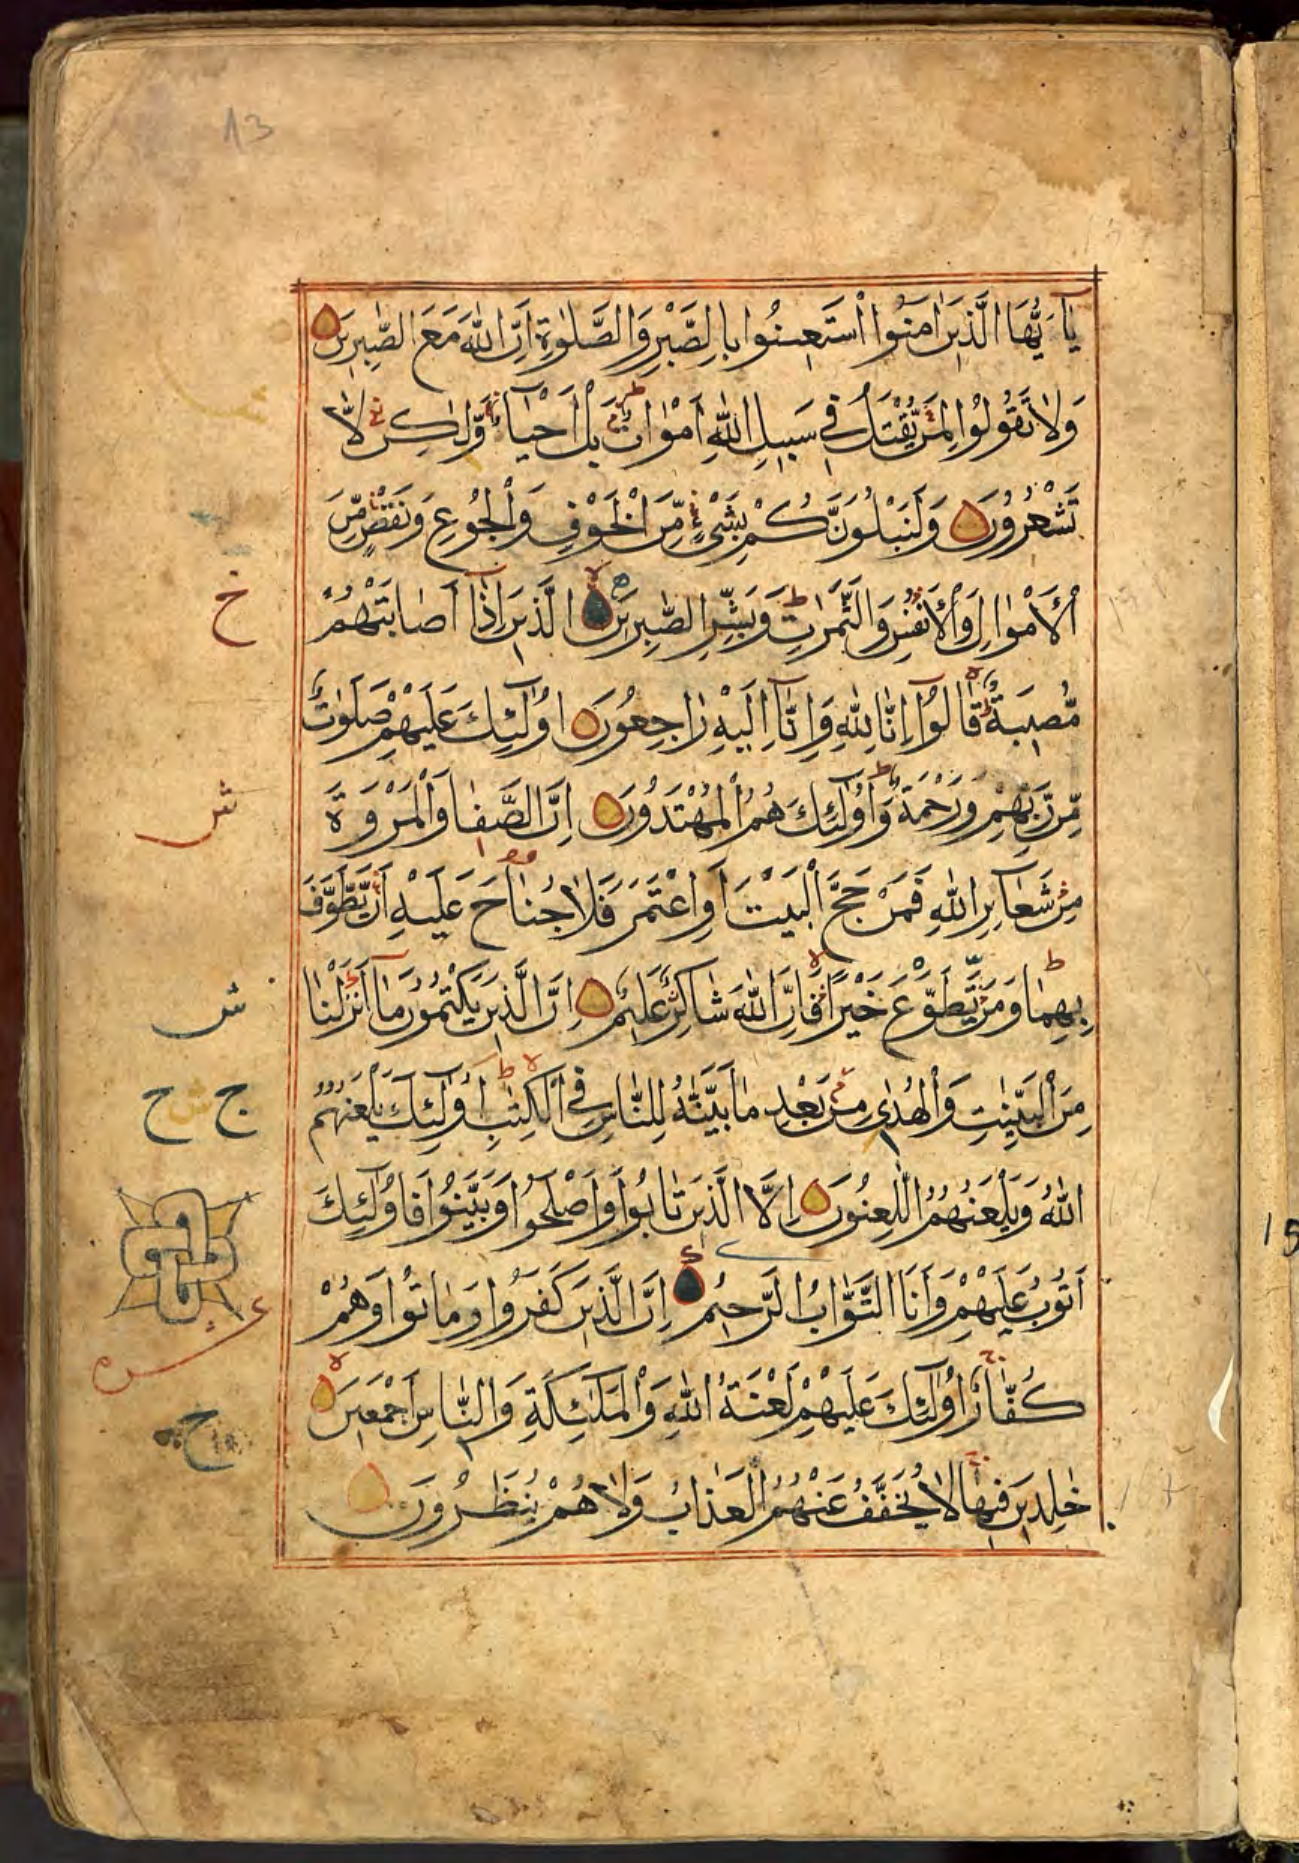 13
يٰٓاَيُّهَا الَّذِيْنَ اٰمَنُوا اسْتَعِيْنُوا بِالصَّبْرِ وَالصَّلٰوةِ اِنَّ اللّٰهَ مَعَ الصّٰبِرِيْنَ
وَلَا تَقُولُوْا لِمَنْ يُّقْتَلُ فِي سَبِيْلِ اللّٰهِ اَمْوَاتٌ بَلْ اَحْيَآءٌ وَّلٰكِنْ لَّا
تَشْعُرُوْنَ وَلَنَبْلُوَنَّكُمْ بِشَيْءٍ مِّنَ الْخَوْفِ وَالْجُوْعِ وَنَقْصٍ مِّنَ
الْاَمْوَالِ وَالْاَنْفُسِ وَالثَّمَرٰتِ وَبَشِّرِ الصّٰبِرِيْنَ الَّذِيْنَ اِذَآ اَصَابَتْهُمْ
مُّصِيْبَةٌ قَالُوْٓا اِنَّا لِلّٰهِ وَاِنَّآ اِلَيْهِ رَاجِعُوْنَ اُولٰٓئِكَ عَلَيْهِمْ صَلَوٰتٌ
مِّنْ رَّبِّهِمْ وَرَحْمَةٌ وَاُولٰٓئِكَ هُمُ الْمُهْتَدُوْنَ اِنَّ الصَّفَا وَالْمَرْوَةَ
مِنْ شَعَآئِرِ اللّٰهِ فَمَنْ حَجَّ الْبَيْتَ اَوِ اعْتَمَرَ فَلَا جُنَاحَ عَلَيْهِ اَنْ يَّطَّوَّفَ
بِهِمَا وَمَنْ تَطَوَّعَ خَيْرًا فَاِنَّ اللّٰهَ شَاكِرٌ عَلِيْمٌ اِنَّ الَّذِيْنَ يَكْتُمُوْنَ مَآ اَنْزَلْنَا
مِنَ الْبَيِّنٰتِ وَالْهُدٰى مِنْ بَعْدِ مَا بَيَّنّٰهُ لِلنَّاسِ فِي الْكِتٰبِ اُولٰٓئِكَ يَلْعَنُهُمُ
اللّٰهُ وَيَلْعَنُهُمُ اللّٰعِنُوْنَ اِلَّا الَّذِيْنَ تَابُوْا وَاَصْلَحُوْا وَبَيَّنُوْا فَاُولٰٓئِكَ
اَتُوْبُ عَلَيْهِمْ وَاَنَا التَّوَّابُ الرَّحِيْمُ اِنَّ الَّذِيْنَ كَفَرُوْا وَمَاتُوْا وَهُمْ
كُفَّارٌ اُولٰٓئِكَ عَلَيْهِمْ لَعْنَةُ اللّٰهِ وَالْمَلٰٓئِكَةِ وَالنَّاسِ اَجْمَعِيْنَ
خٰلِدِيْنَ فِيْهَا لَا يُخَفَّفُ عَنْهُمُ الْعَذَابُ وَلَا هُمْ يُنْظَرُوْنَ
خ
ش
ش
ج ش ح
ج
15